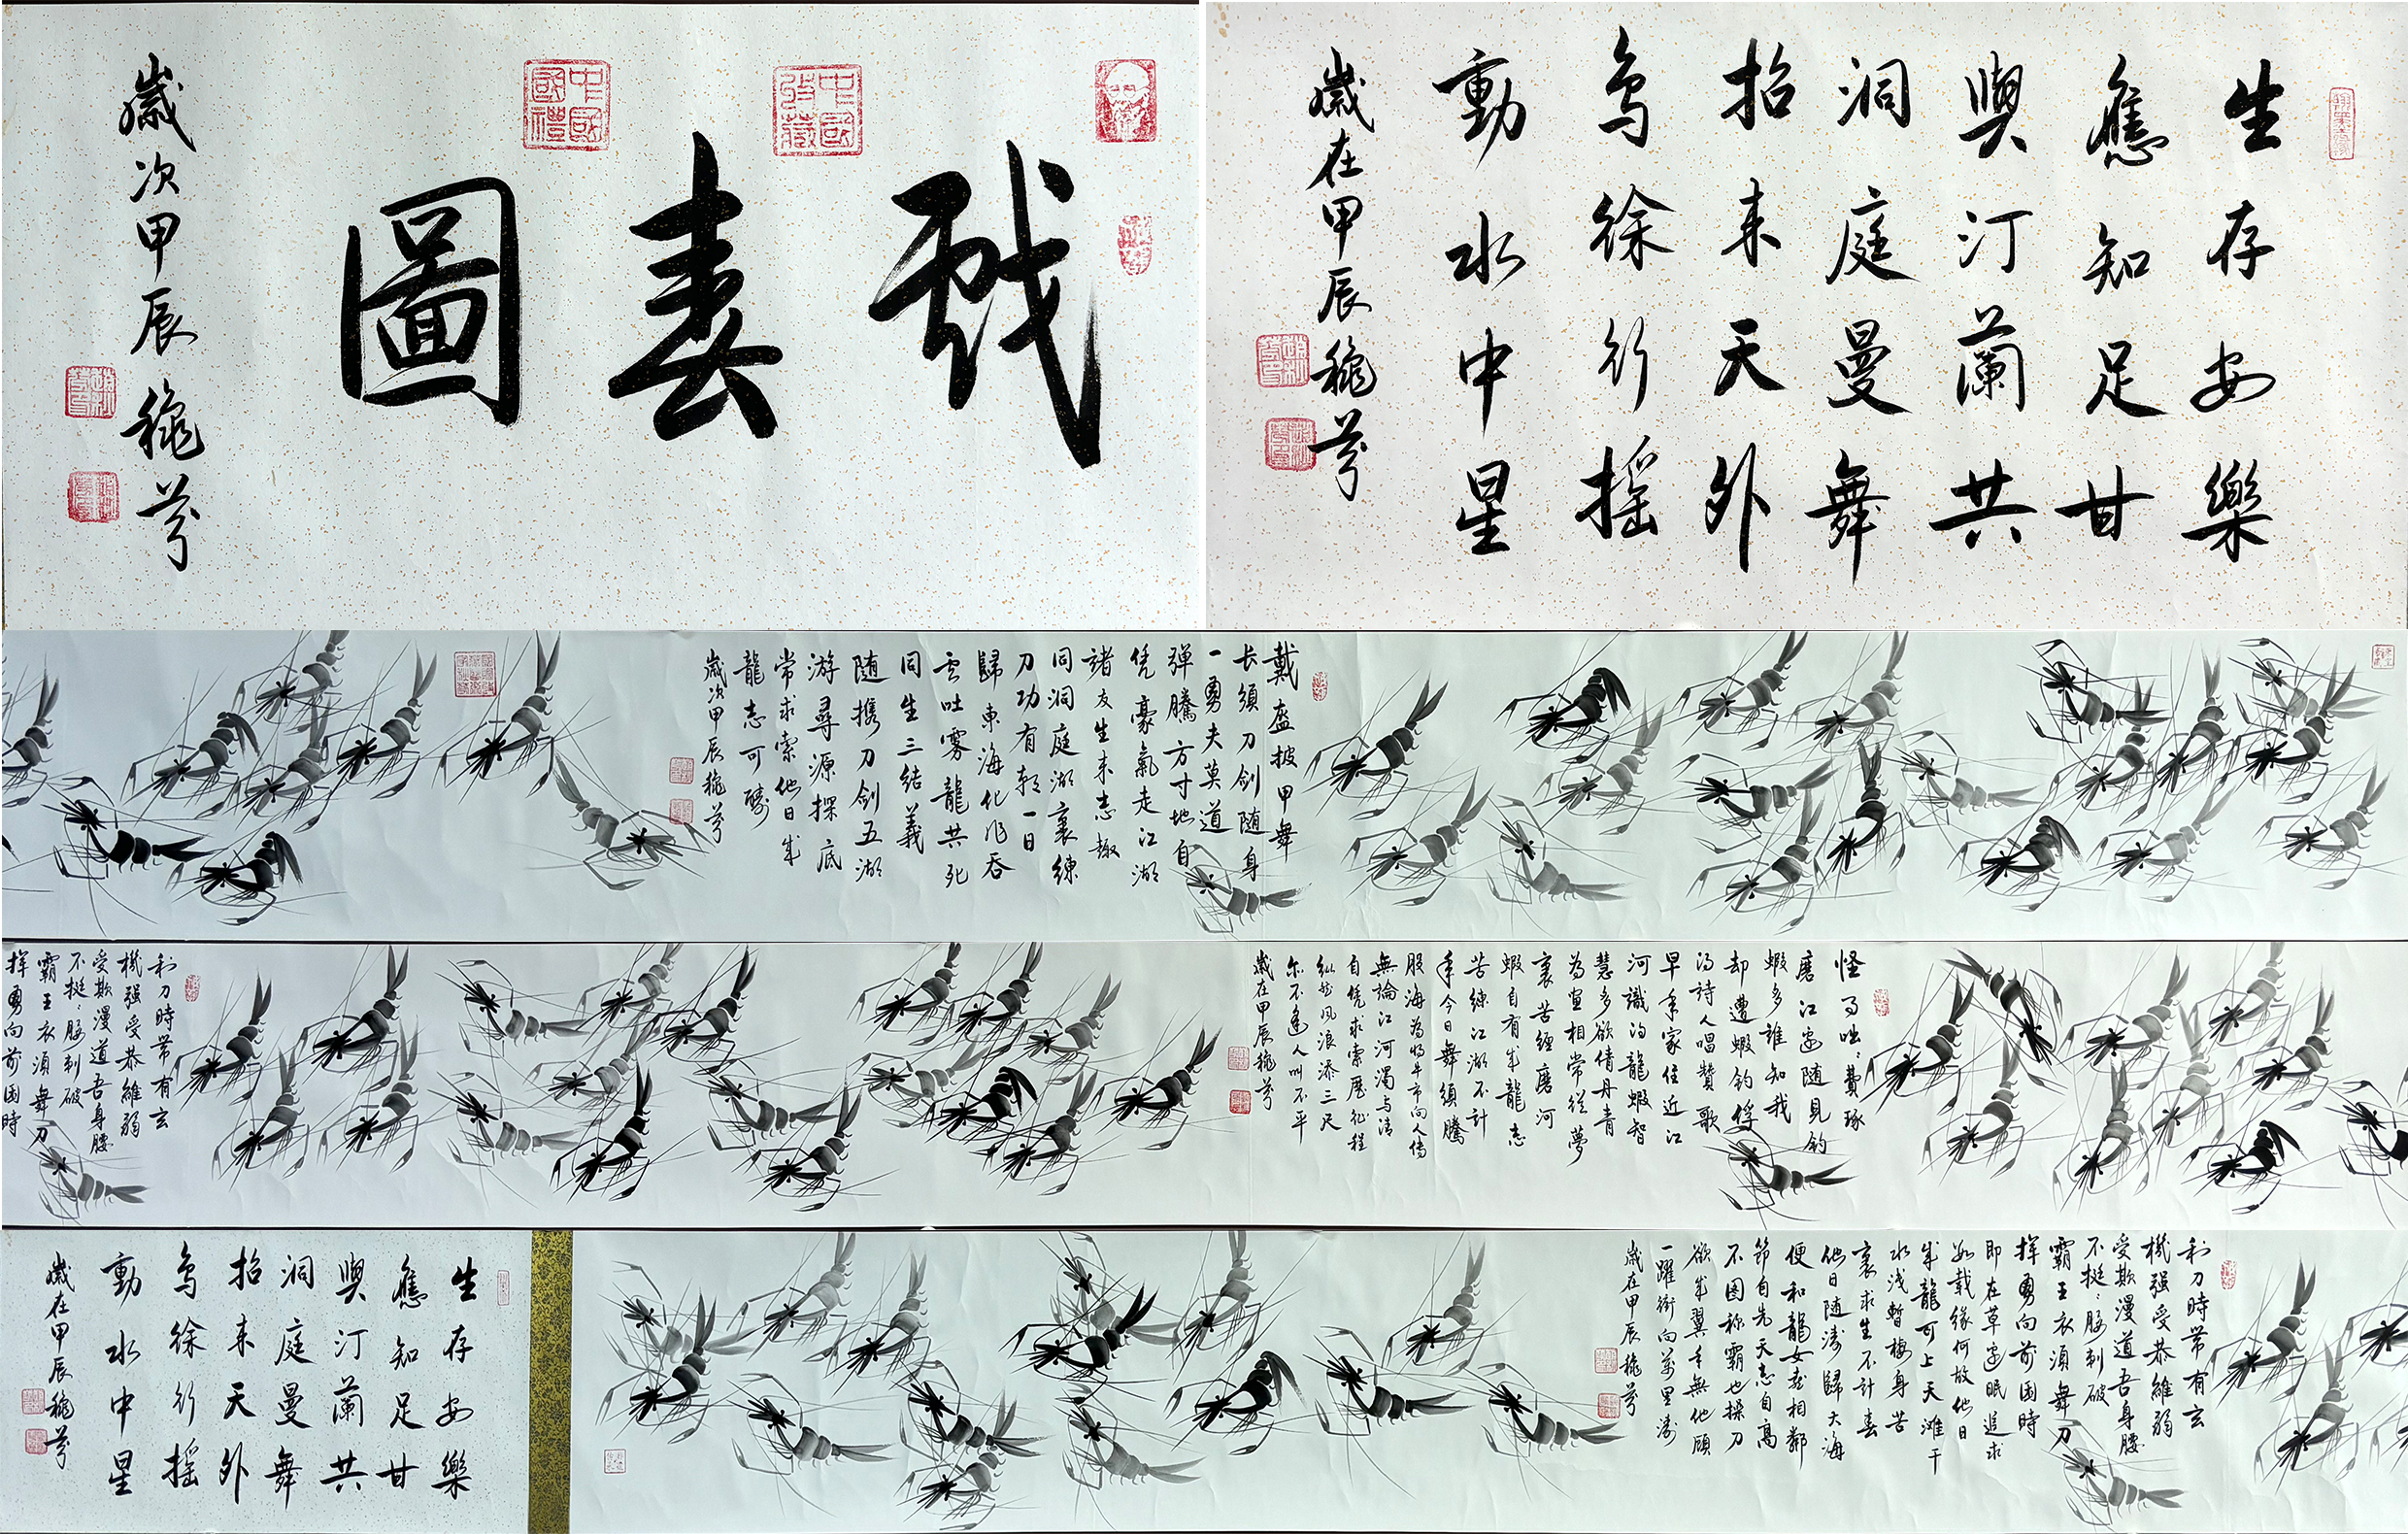 戲春圖
歲次甲辰穐芬
中國國禮
中國收藏
生存安樂
應知足甘
與汀蘭共
洞庭曼舞
招来天外
鳥徐行摇
動水中星
歲在甲辰穐芬
戴盔披甲舞
长須刀剑随身
一勇夫莫道
弹騰方寸地自
凭豪氣走江湖
諸友生来志趣
同洞庭湖裏練
刀功有朝一日
歸東海化作吞
雲吐雾龍共死
同生三結義
随携刀剑五湖
游尋源探底
常求索他日成
龍志可酬
歲次甲辰穐芬
怪事咄咄费琢
磨江邊随見釣
蝦多谁知我
却遭蝦釣俘
得詩人唱贊歌
早年家住近江
河識得龍蝦智
慧多欲倩丹青
為寫相常從夢
裏苦經磨河
蝦自有成龍志
苦練江湖不計
年今日舞須騰
股海為將牛市向人傳
無論江河濁与清
自凭求索歷征程
縱然风浪添三尺
亦不逢人叫不平
歲在甲辰穐芬
利刀時带有玄
機强受恭維弱
受欺漫道吾身腰
不挺腰刺破
霸王衣須舞刀
揮勇向前困時
利刀時带有玄
機强受恭維弱
受欺漫道吾身腰
不挺腰刺破
霸王衣須舞刀
揮勇向前困時
即在草邊眠追求
载缘何故他日
成龍可上天滩干
水浅暫棲身苦
裏求生不計春
他日随濤歸大海
便和龍女相鄰
節自先天志自高
不图称霸也操刀
欲成翼手無他顾
一躍衝向万里濤
歲在甲辰穐芬
生存安樂
應知足甘
與汀蘭共
洞庭曼舞
招来天外
鳥徐行摇
動水中星
歲在甲辰穐芬